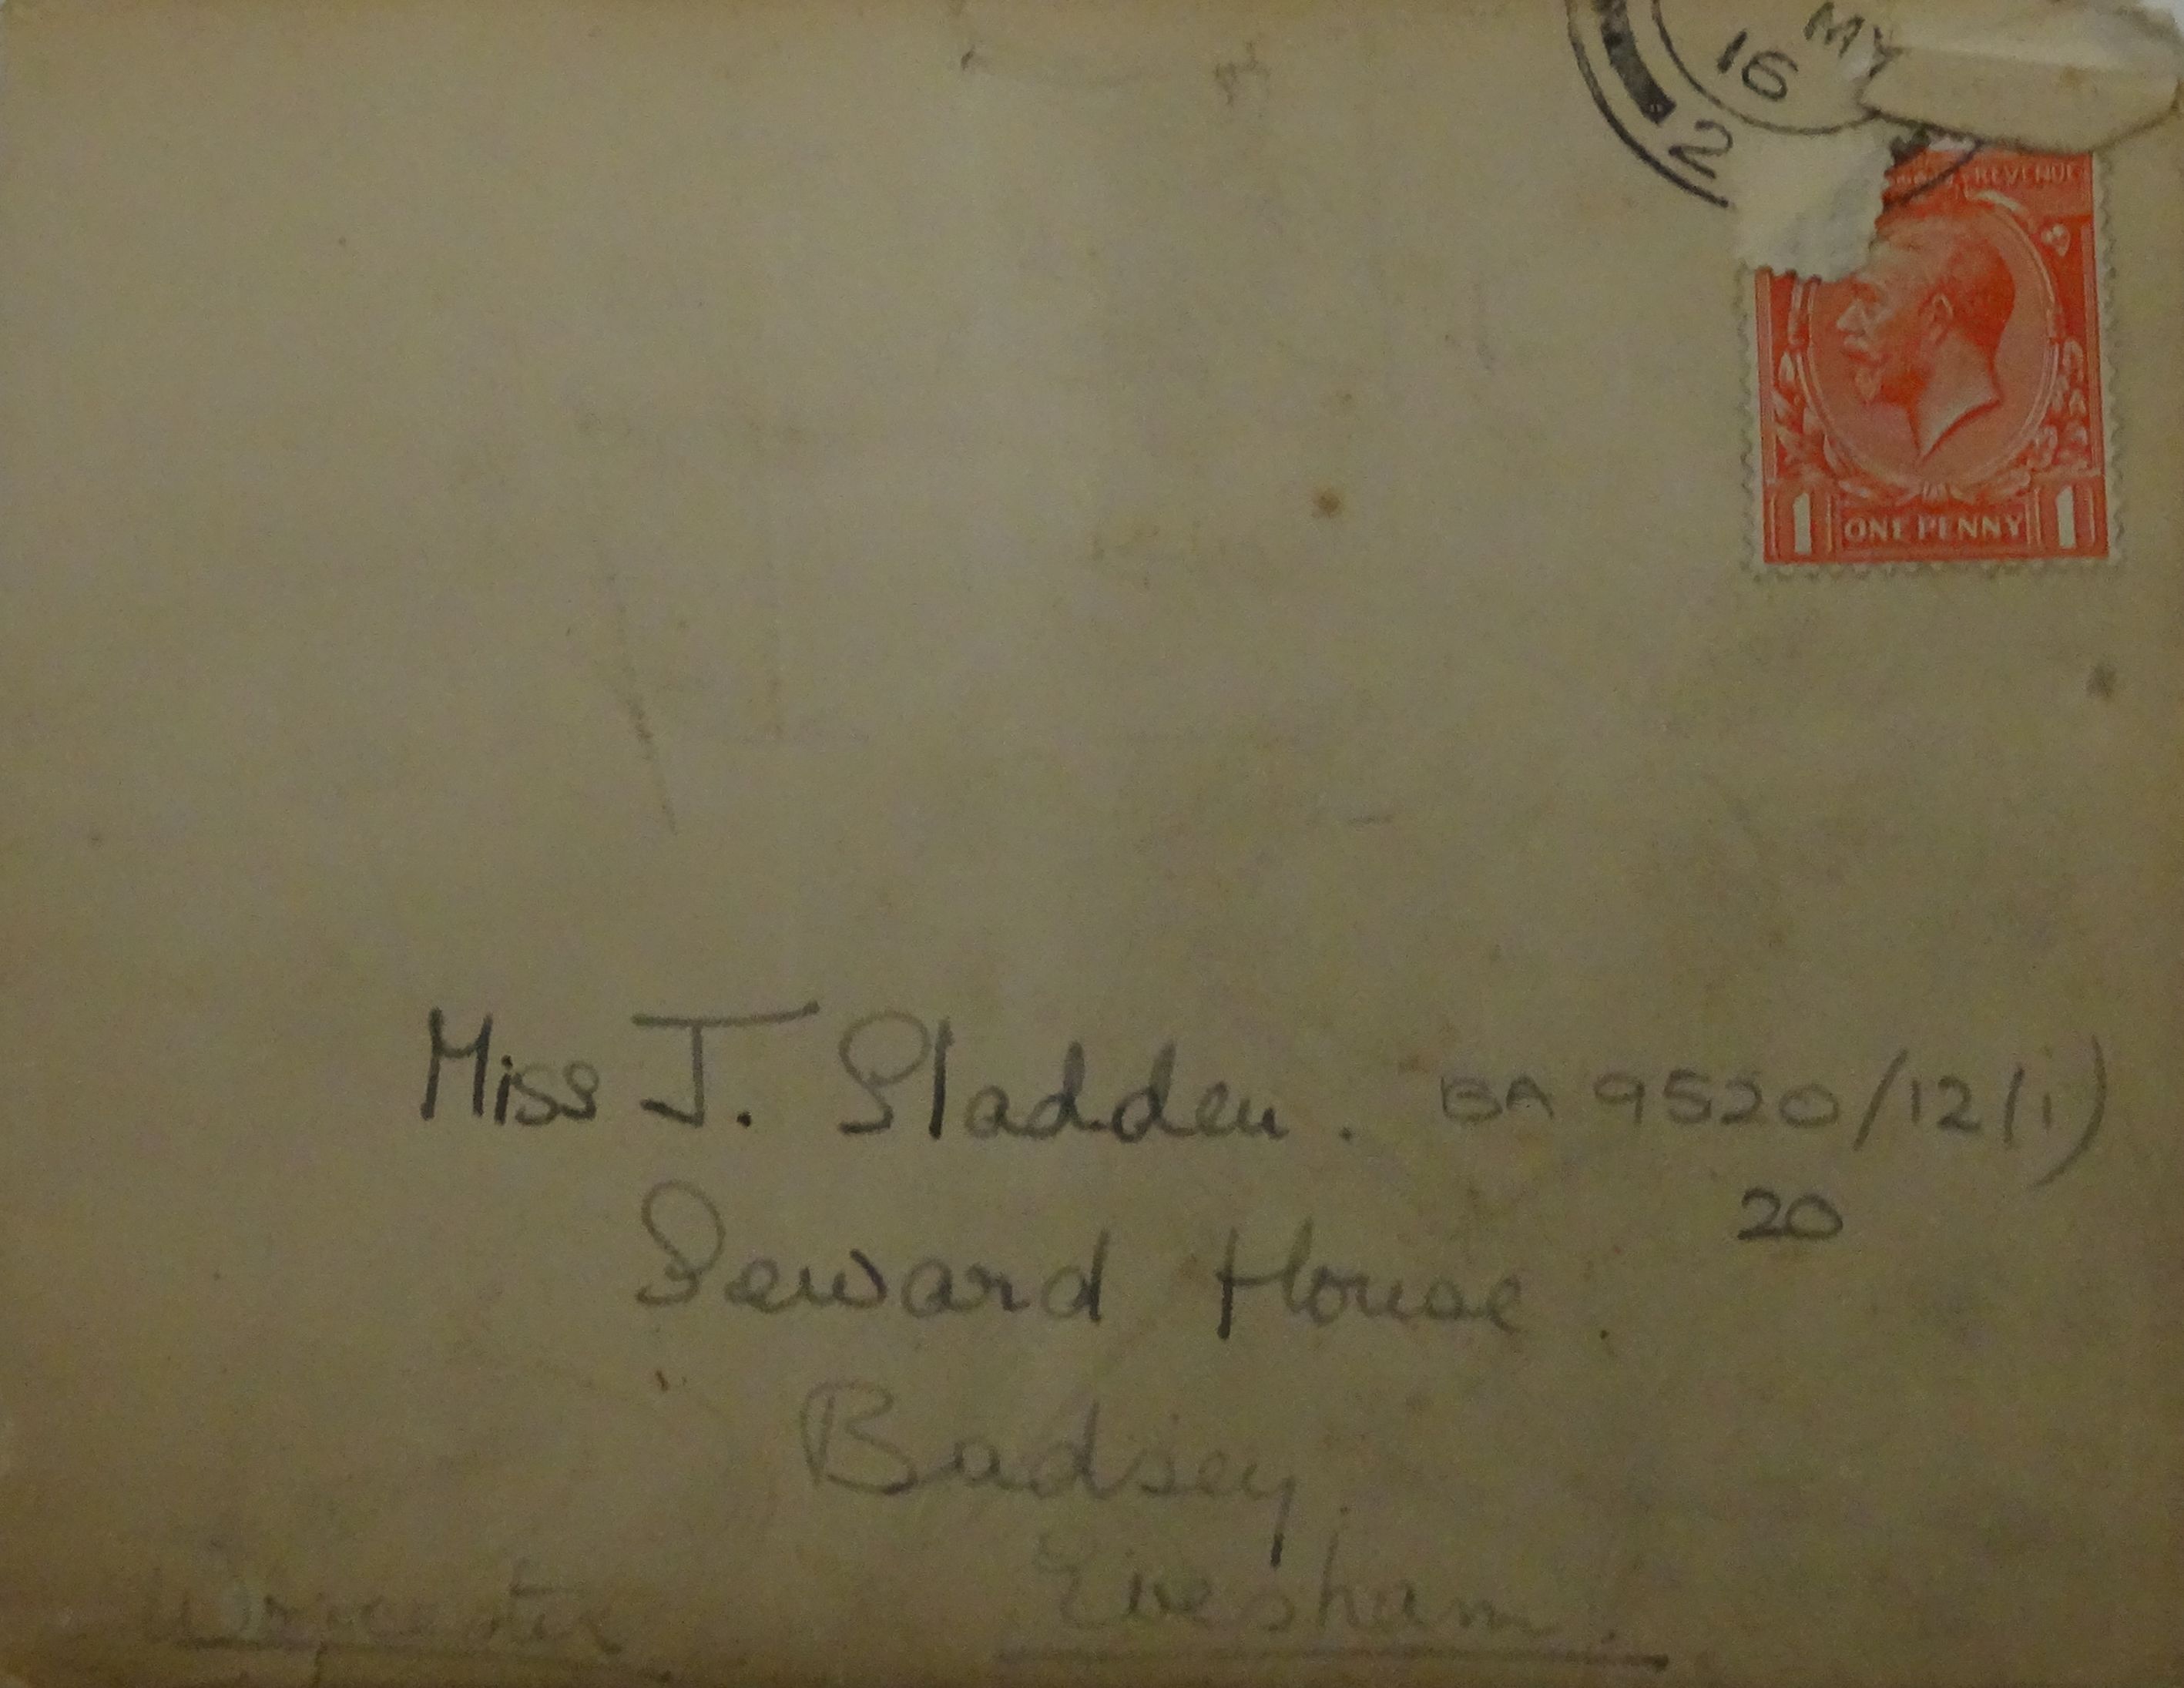 MY
16
2
REVENUE
1 ONE PENNY 1
Miss J. Sladden. BA 9520/12/1)
20
Seward House.
Badsey.
Evesham.
Worcester